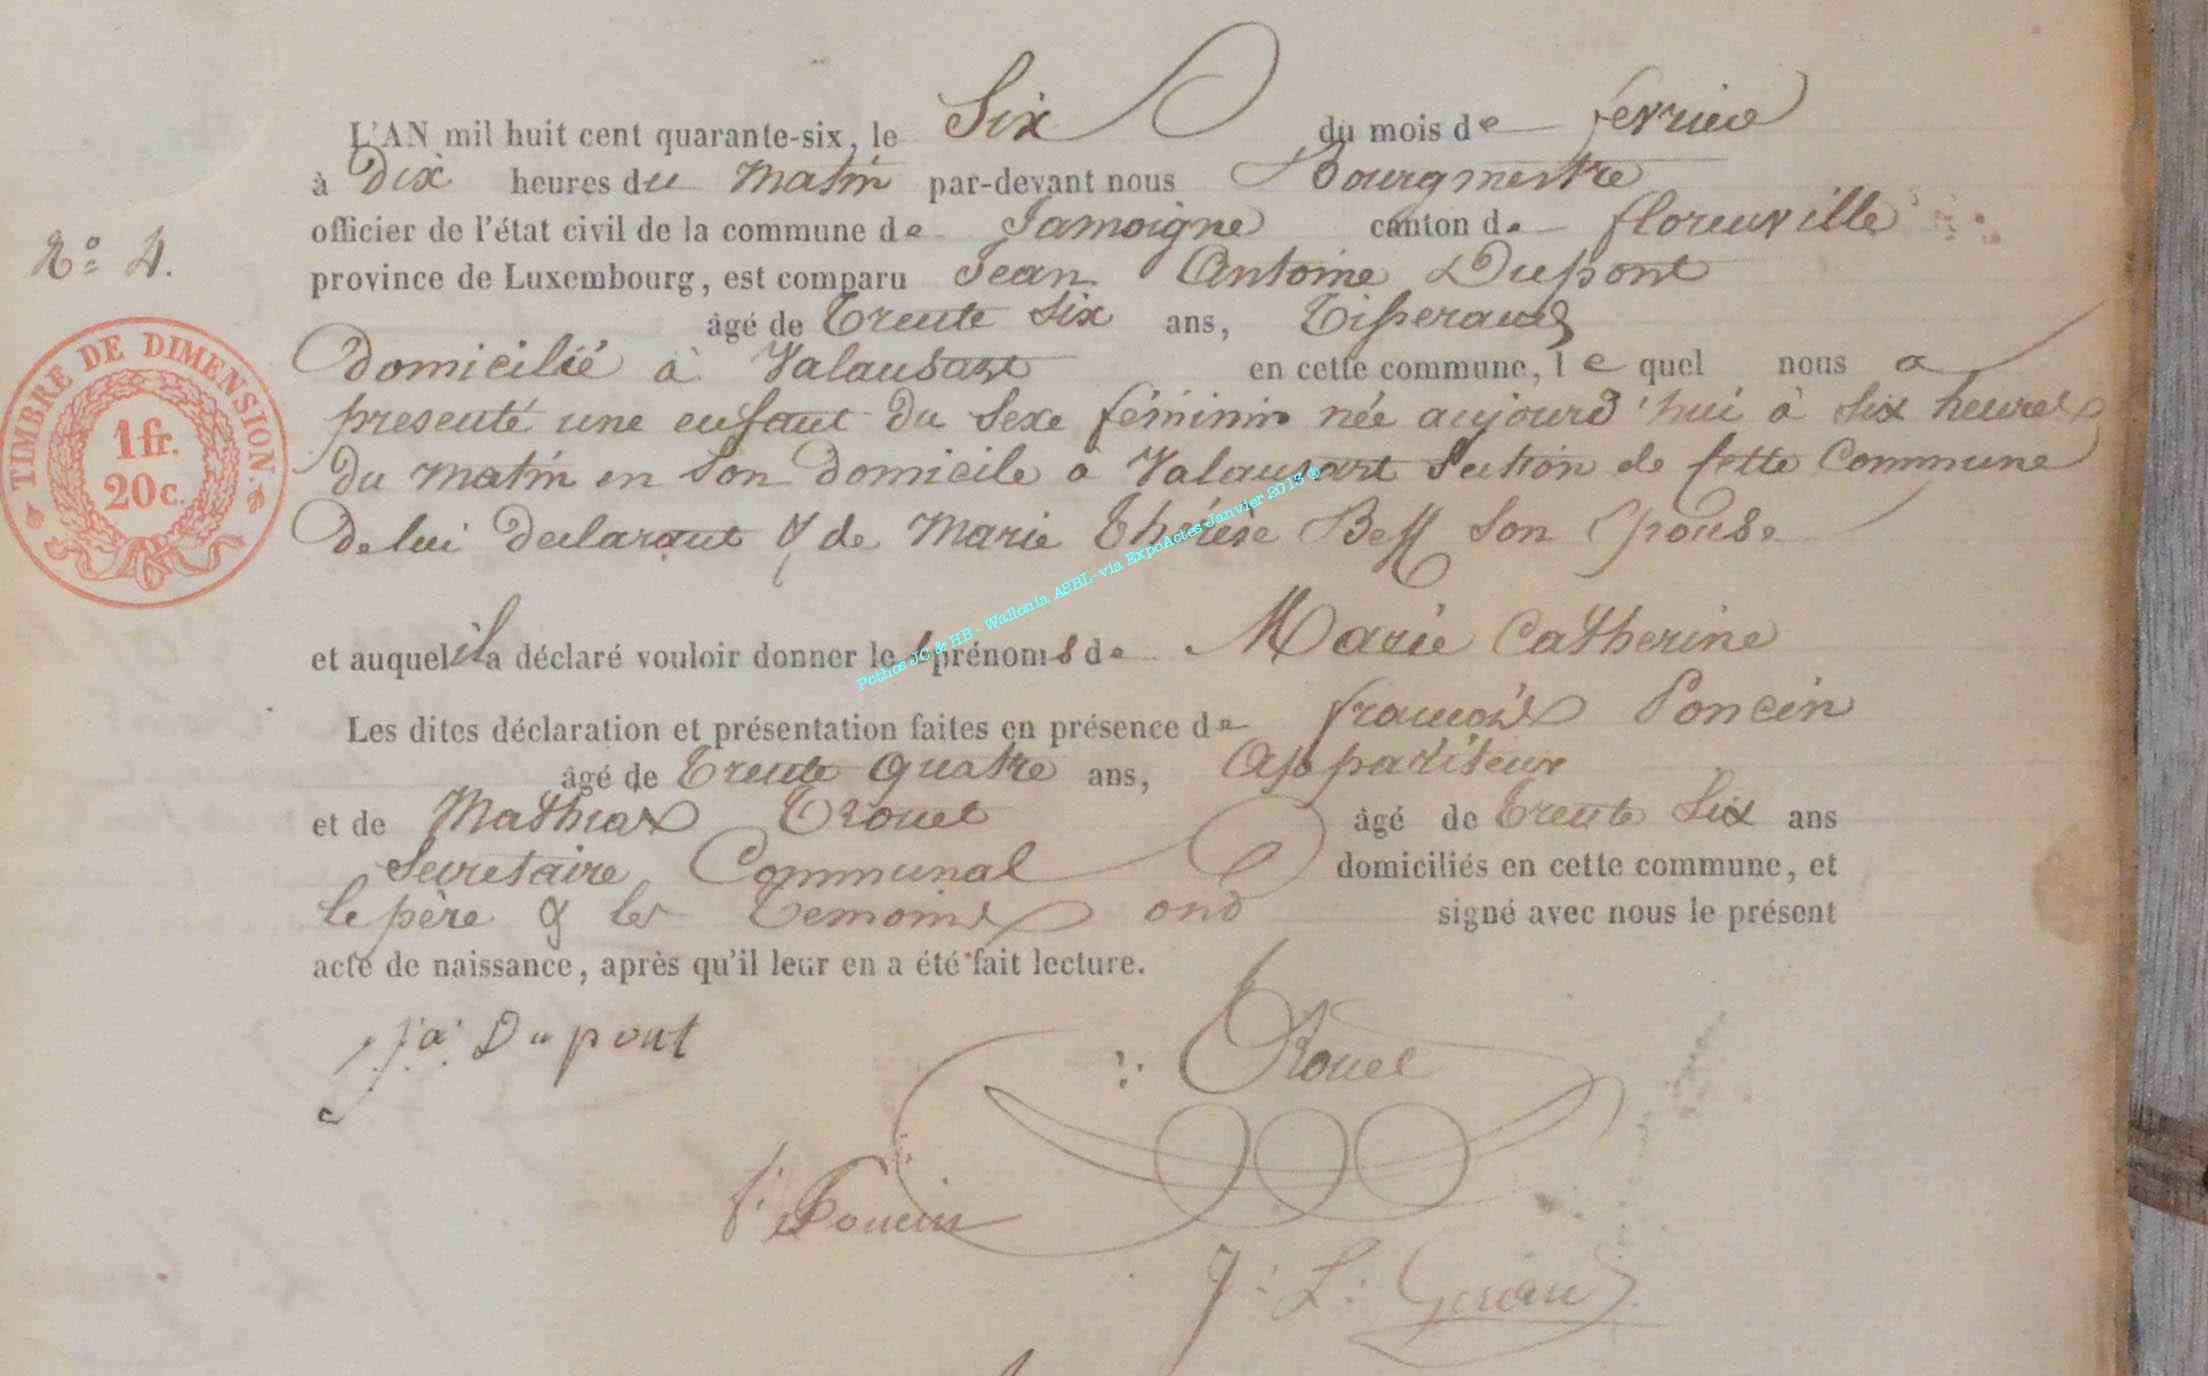 L'AN mil huit cent quarante-six, le Six du mois de fevrier
à Dix heures du Matin par-devant nous Bourgmestre
officier de l'état civil de la commune de Jamoigne canton de florenville
N.º 4.
province de Luxembourg, est comparu Jean Antoine Dupont
âgé de Trente six ans, Tisserand
TIMBRE DE DIMENSION.
1 fr.
20 c.
Domicilié à Valansart en cette commune, le quel nous a
presenté une enfant du Sexe féminin née aujourd'hui à six heures
du matin en son domicile à Valansart Section de Cette Commune
De lui declarant & de Marie Thérèse Son Epouse
et auquel il a déclaré vouloir donner les prénoms de Marie Catherine
Les dites déclaration et présentation faites en présence de françois Poncin
âgé de Trente quatre ans, Appariteur
et de Mathias Trouet âgé de Trente Six ans
Secretaire Communal domiciliés en cette commune, et
le père & les Temoins ont signé avec nous le présent
acte de naissance, après qu'il leur en a été fait lecture.
j. a. Dupont
Trouet
f. Poncin
J: L:
Pothos JC & HB - Wallonia ASBL- via ExpoActes Janvier 2013 ©